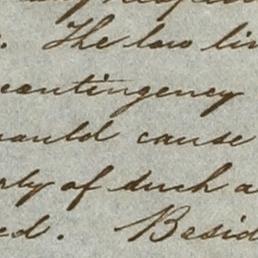 . The law lin
contingency
would cause
rty of such a
ed. Besid